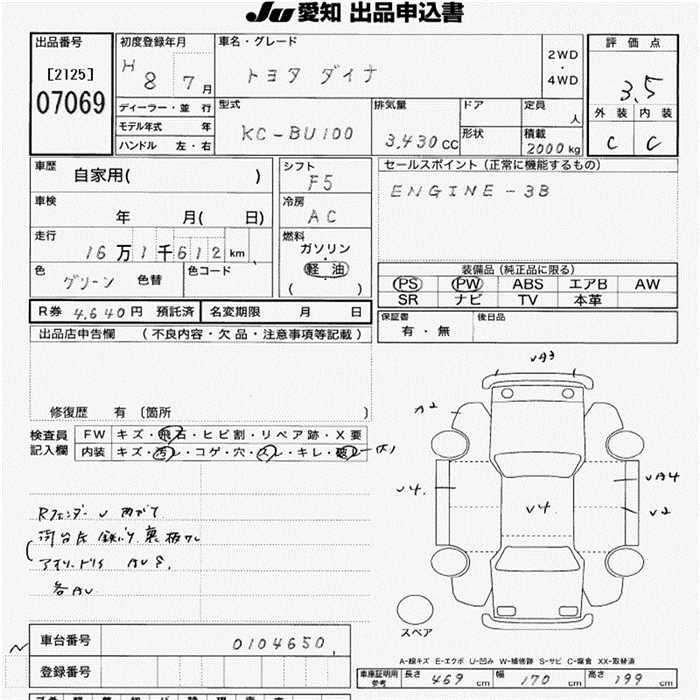 JU愛知 出品申込書
出品番号
[2125]
07069
初度登録年月
H 8 7月
車名・グレード
トヨタ ダイナ
2WD
・
4WD
評価点
3.5
外装 内装
C C
ディーラー・並 行
モデル年式 年
ハンドル 左・右
型式
KC-BU100
排気量
3,430cc
ドア
形状
定員
人
積載
2000kg
車歴
自家用( )
シフト
F5
セールスポイント (正常に機能するもの)
ENGINE-3B
車検
年 月( 日)
冷房
AC
走行
16万1千612km
燃料
ガソリン
軽油
( )
色
グリーン 色替
色コード
装備品 (純正品に限る)
PS PW ABS エアB AW
SR ナビ TV 本革
R券 4,640円 預託済
名変期限 月 日
保証書
有・無
後日品
出品店申告欄 (不良内容・欠品・注意事項等記載)
修復歴 有 〔箇所 〕
検査員
記入欄
FW キズ・飛石・ヒビ割・リペア跡・X要
内装 キズ・汚レ・コゲ・穴・スレ・キレ・破レ
Rフェンダー
各AU
UA3
A2
U4.
U4
UA4
U2
スペア
車台番号
0104650
登録番号
A-線キズ E-エクボ U-凹み W-補修跡 S-サビ C-腐食 XX-取替済
車庫証明用
参考
長さ 469cm 幅 170cm 高さ 199cm